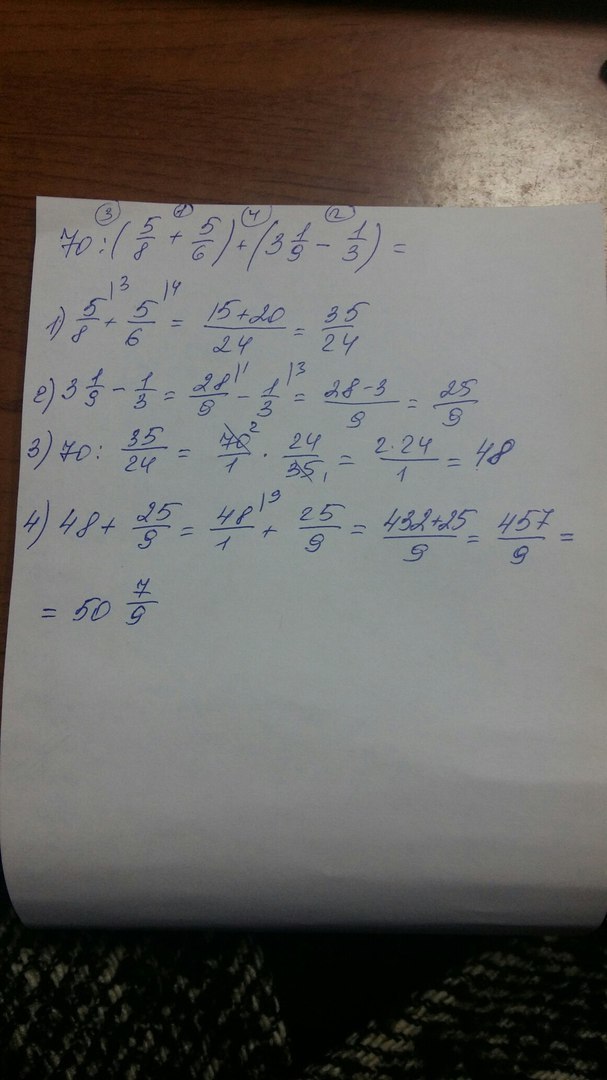 ③ ① ④ ②
70 : ( 5/8 + 5/6 ) + ( 3 1/9 - 1/3 ) =
1) 5/8 |3 + 5/6 |4 = 15+20/24 = 35/24
2) 3 1/9 - 1/3 = 28/9 |1 - 1/3 |3 = 28-3/9 = 25/9
3) 70 : 35/24 = 70 2/1 · 24/35 1 = 2·24/1 = 48
4) 48 + 25/9 = 48/1 |9 + 25/9 = 432+25/9 = 457/9 =
= 50 7/9